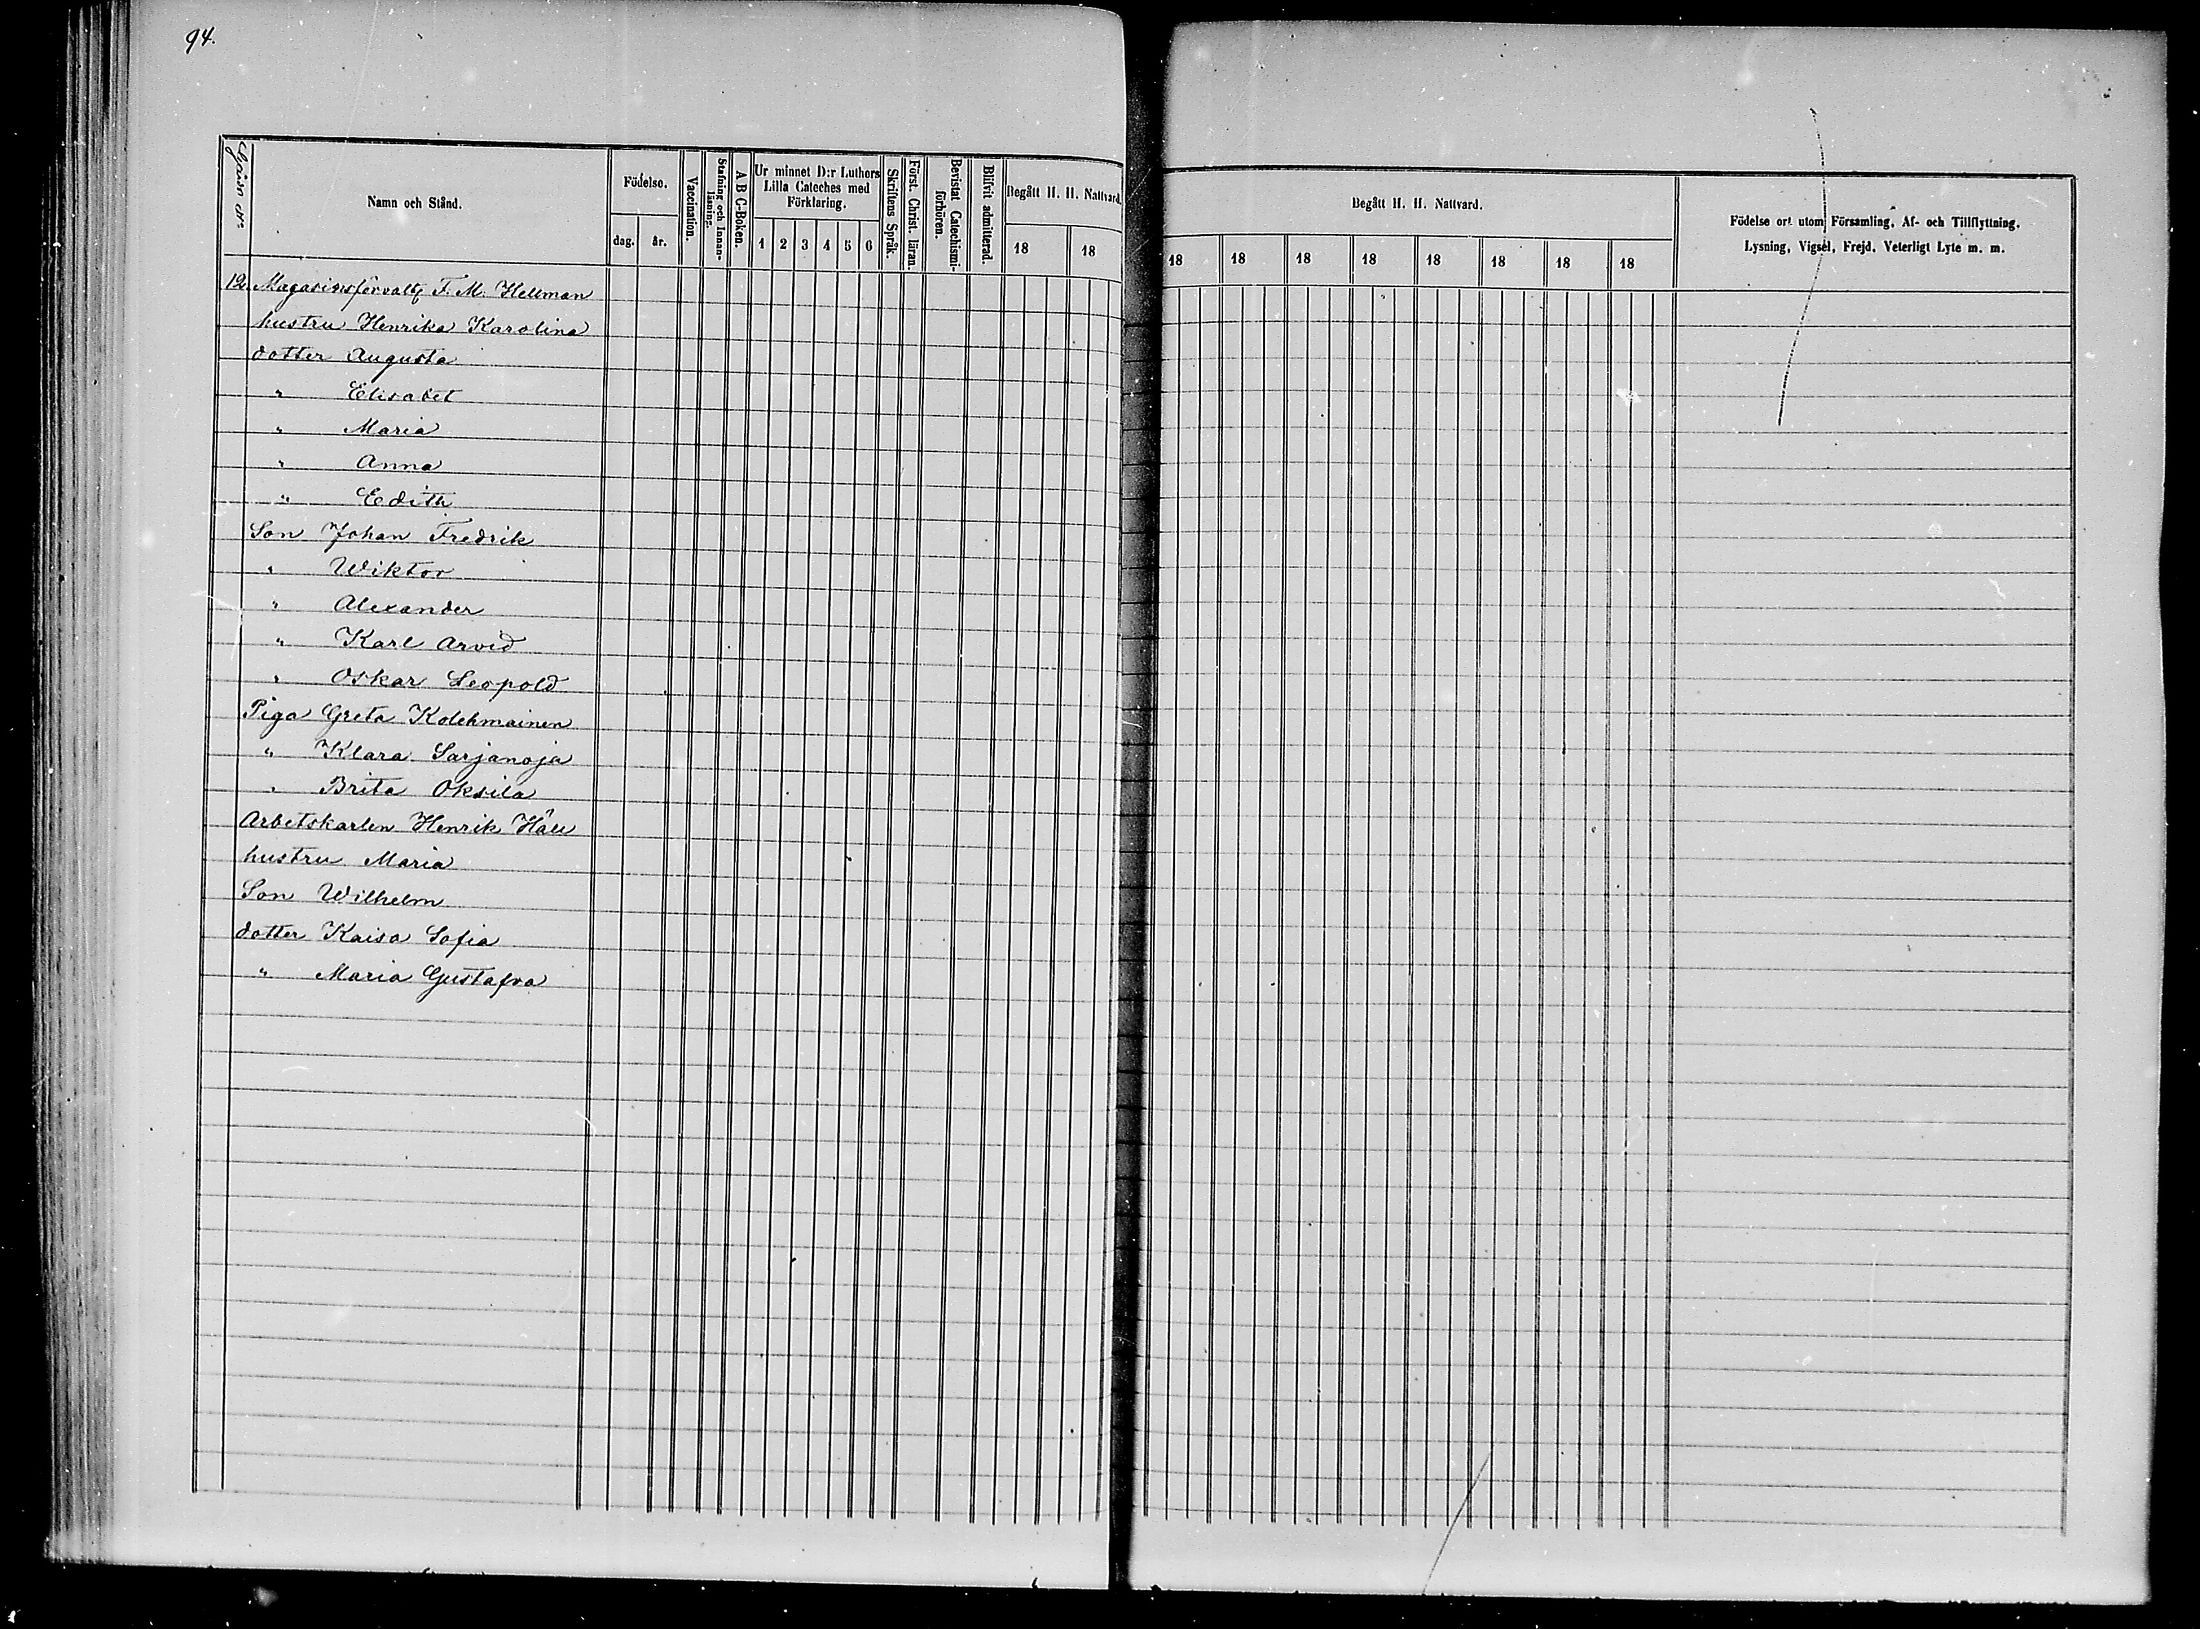 94.
Gård No
Namn och Stånd.
Födelse.
dag.
år.
Vaccination.
Stafning och Innanläsning.
A B C-Boken.
Ur minnet D:r Luthers
Lilla Cateches med
Förklaring.
1 2 3 4 5 6
Skriftens Språk.
Först. Christ. läran.
Bevistat Catechismi-
förhören.
Blifvit admitterad.
Begått H. H. Nattvard.
18 18
Begått H. H. Nattvard.
18 18 18 18 18 18 18 18
Födelse ort utom Församling, Af- och Tillflyttning,
Lysning, Vigsel, Frejd, Veterligt Lyte m. m.
12. Magasinsförvalt. F. M. Hellman
hustru Henrika Karolina
dotter Augusta
" Elisabet
" Maria
" Anna
" Edith
Son Johan Fredrik
" Wiktor
" Alexander
" Karl Arvid
" Oskar Leopold
Piga Greta Kolehmainen
" Klara Sarjanoja
" Brita Oksila
Arbetskarlen Henrik Häll
hustru Maria
Son Wilhelm
dotter Kaisa Sofia
" Maria Gustafva